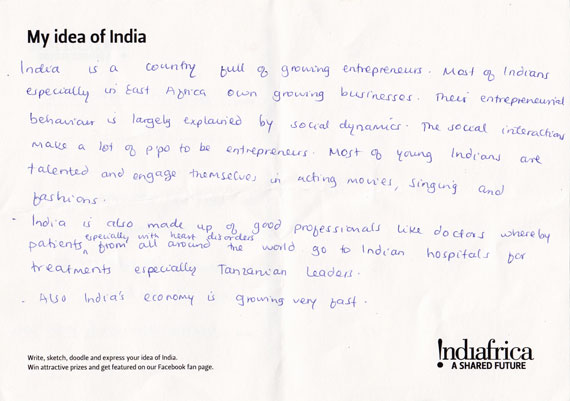 My idea of India
. India is a country full of growing entrepreneurs. Most of Indians
especially in East Africa own growing businesses. Their entrepreneurial
behaviour is largely explained by social dynamics. The social interactions
make a lot of p'po to be entrepreneurs. Most of young Indians are
talented and engage themselves in acting movies, singing and
fashions.
- India is also made up of good professionals like doctors whereby
especially with heart disorders
patients ^ from all around the world go to Indian hospitals for
treatments especially Tanzanian Leaders.
. Also India's economy is growing very fast.
Write, sketch, doodle and express your idea of India.
Win attractive prizes and get featured on our Facebook fan page.
!ndiafrica
A SHARED FUTURE